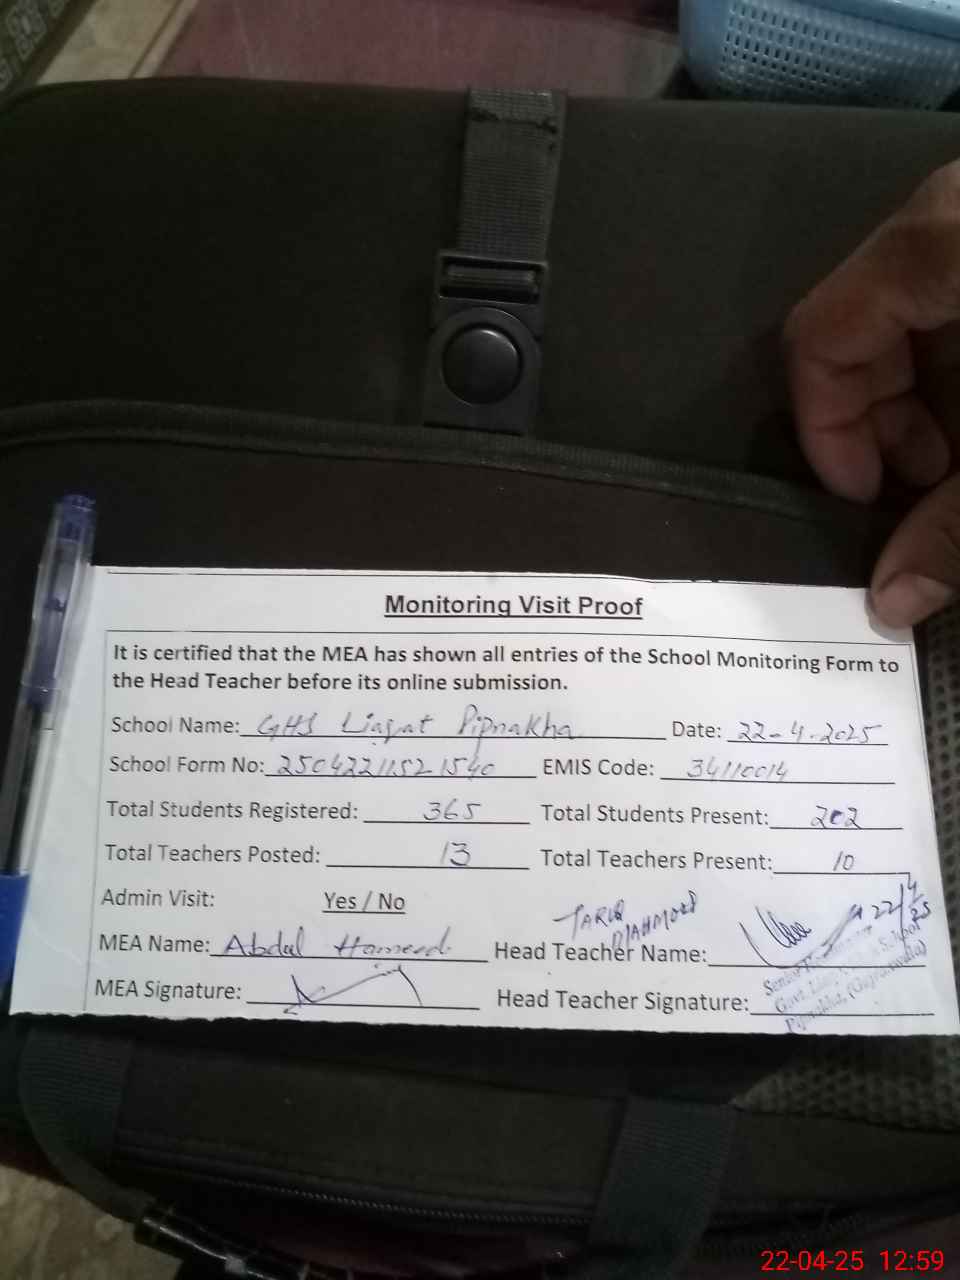 Monitoring Visit Proof
It is certified that the MEA has shown all entries of the School Monitoring Form to
the Head Teacher before its online submission.
School Name: GHS Liaqat Pipnakha Date: 22-4-2025
School Form No: 2504221152 1540 EMIS Code: 34110014
Total Students Registered: 365 Total Students Present: 202
Total Teachers Posted: 13 Total Teachers Present: 10
Admin Visit: Yes / No
TARIQ MAHMOOD 22/4/25
MEA Name: Abdul Hameed Head Teacher Name:
MEA Signature: Head Teacher Signature:
Senior
Govt. School
Pipnakha, (Gujranwala)
22-04-25 12:59